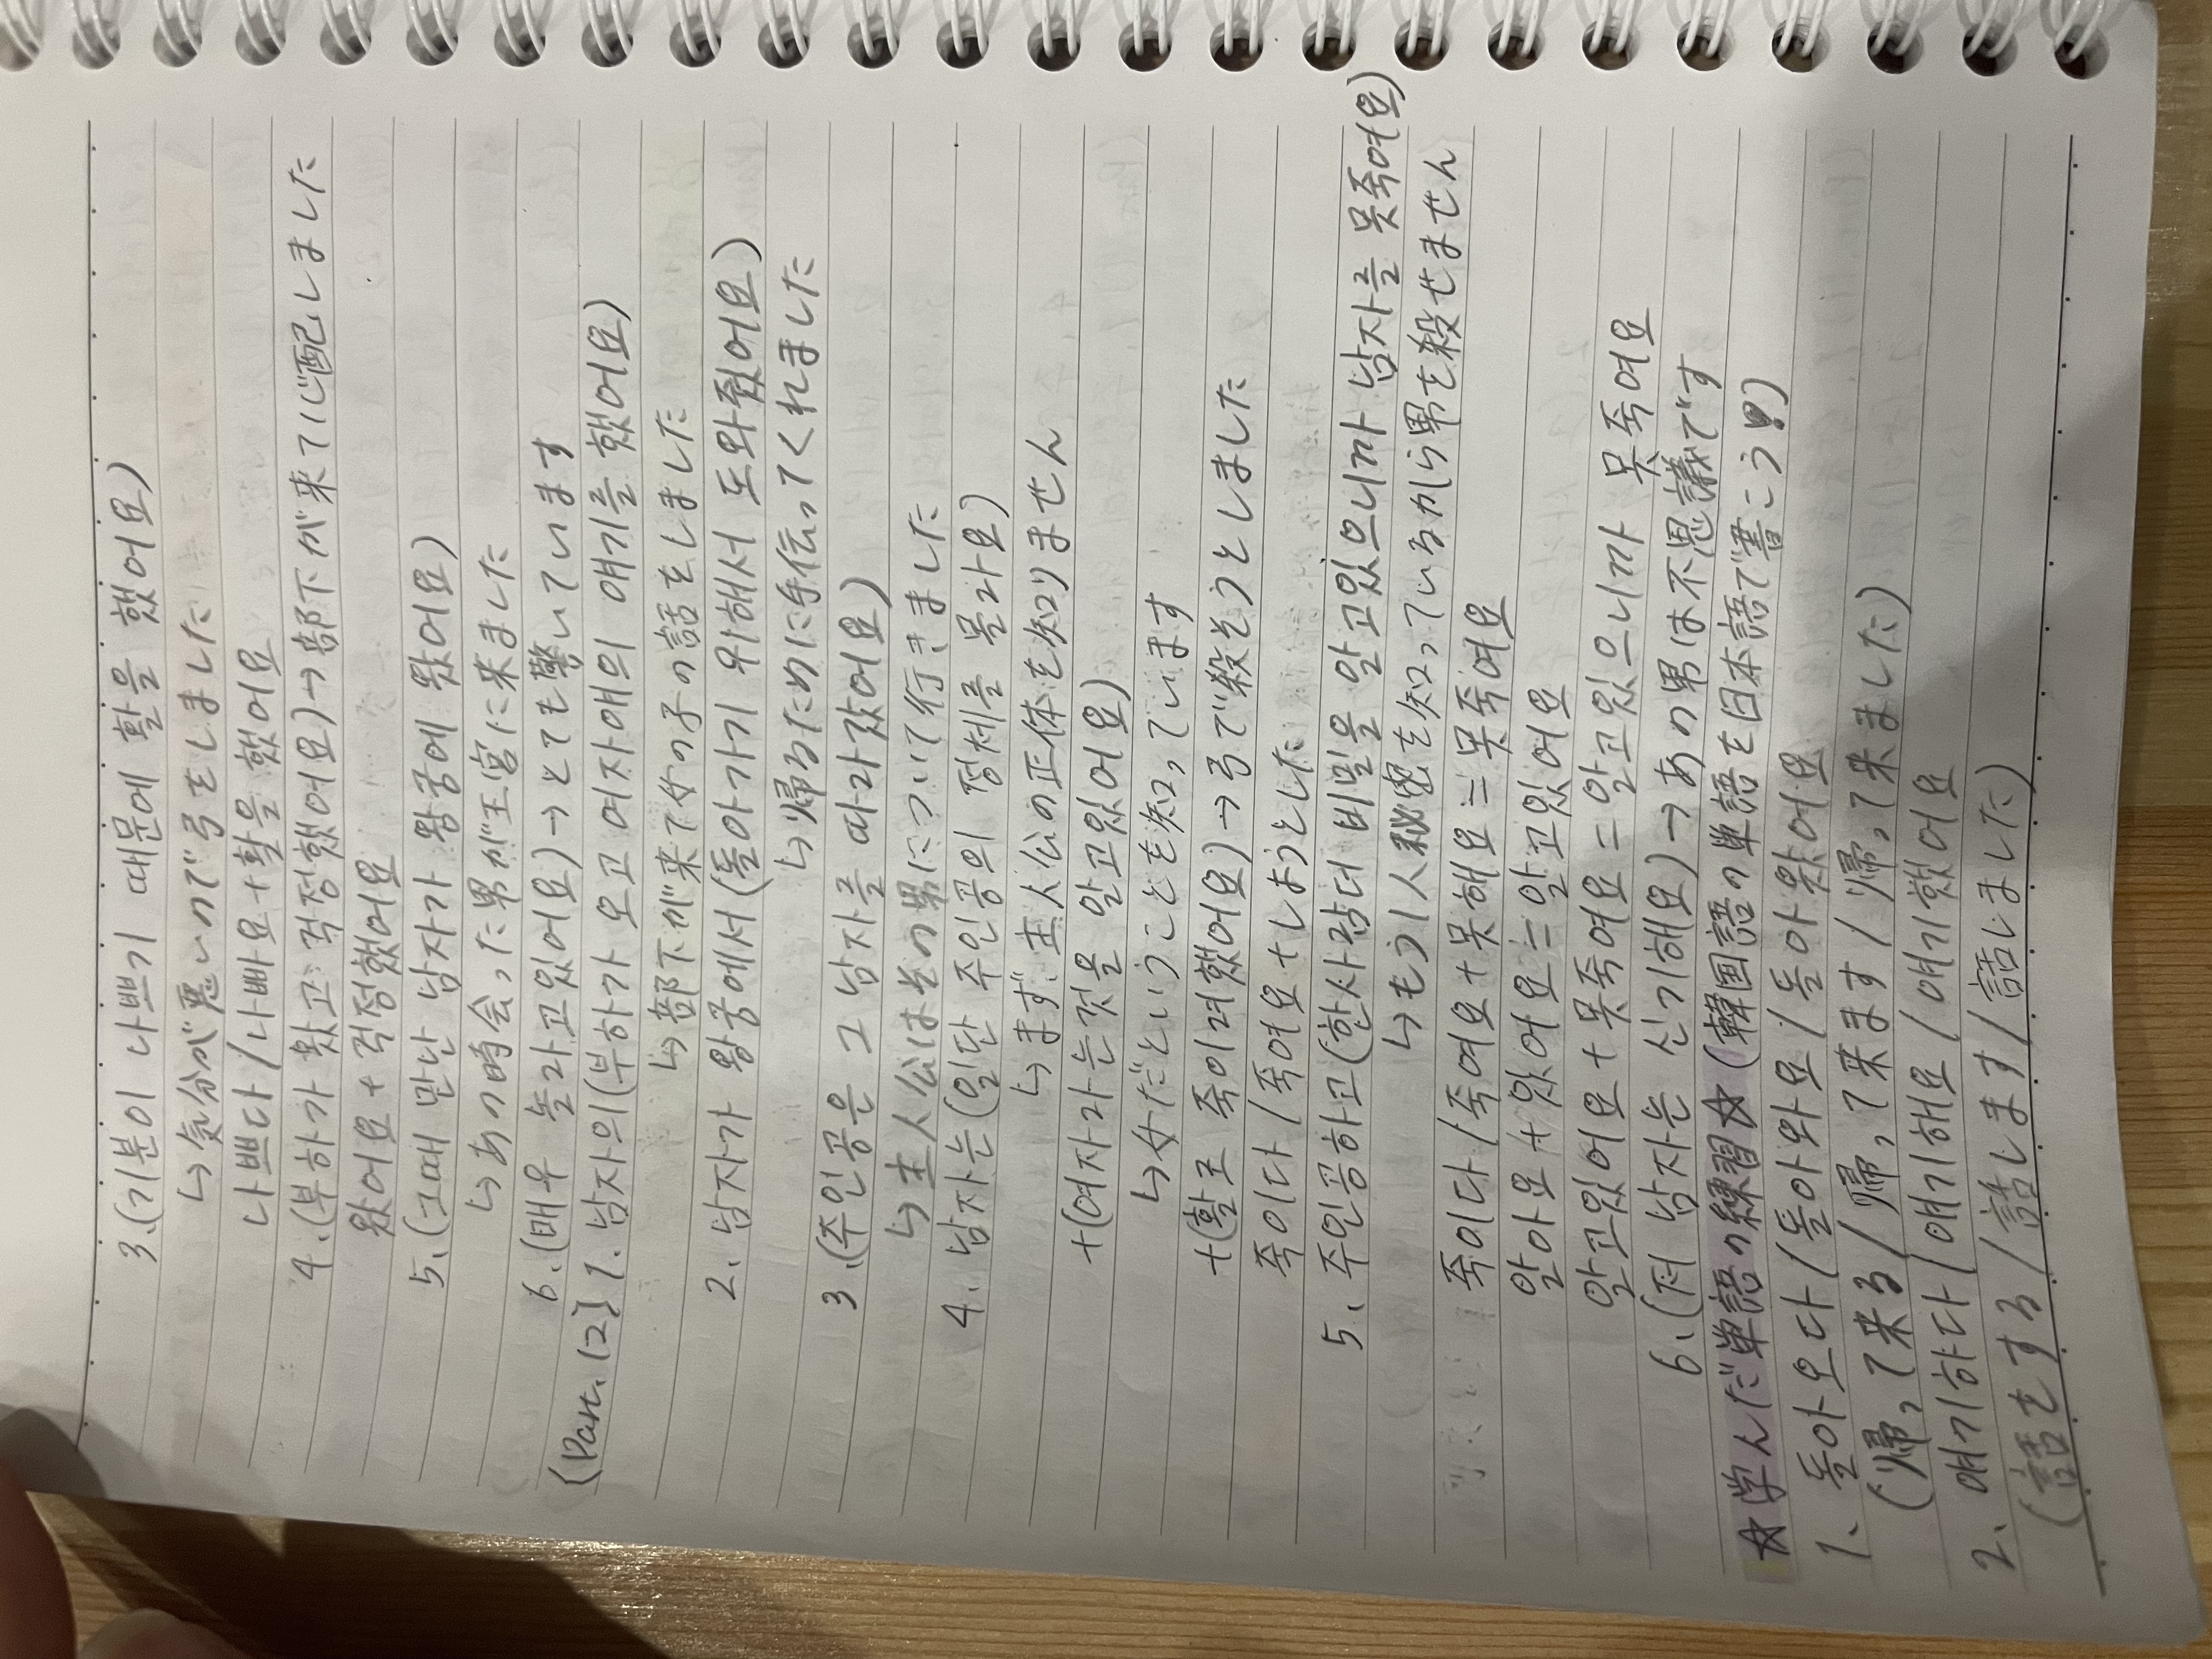 3、(기분이 나쁘기 때문에 활을 했어요)
↳気分が悪いので弓をしました
나쁘다/나빠요+활을 했어요
4、(부하가 왔고 걱정했어요)→部下が来て心配しました
왔어요+걱정했어요
5、(그때 만난 남자가 왕궁에 왔어요)
↳あの時会った男が王宮に来ました
6、(매우 놀라고있어요)→とても驚いています
(Part、12) 1、남자의(부하가 오고 여자애의 얘기를 했어요)
↳部下が来て女の子の話をしました
2、남자가 왕궁에서(돌아가기 위해서 도와줬어요)
↳帰るために手伝ってくれました
3、(주인공은 그 남자를 따라갔어요)
↳主人公はその男について行きました
4、남자는(일단 주인공의 정체를 몰라요)
↳まず主人公の正体を知りません
+(여자라는것을 알고있어요)
↳女だということを知っています
+(활로 죽이려했어요)→弓で殺そうとしました
죽이다/죽여요+しようとした
5、주인공하고(한사람더 비밀을 알고있으니까 남자를 못죽여요)
↳もう1人秘密を知っているから男を殺せません
죽이다/죽여요+못해요=못죽여요
알아요+있어요=알고있어요
알고있어요+못죽여요=알고있으니까 못죽여요
6、(저 남자는 신기해요)→あの男は不思議です
☆学んだ単語の練習☆(韓国語の単語を日本語で書こう!)
1、돌아오다/돌아와요/돌아왔어요
(帰って来る/帰って来ます/帰って来ました)
2、얘기하다/얘기해요/얘기했어요
(話をする/話します/話しました)